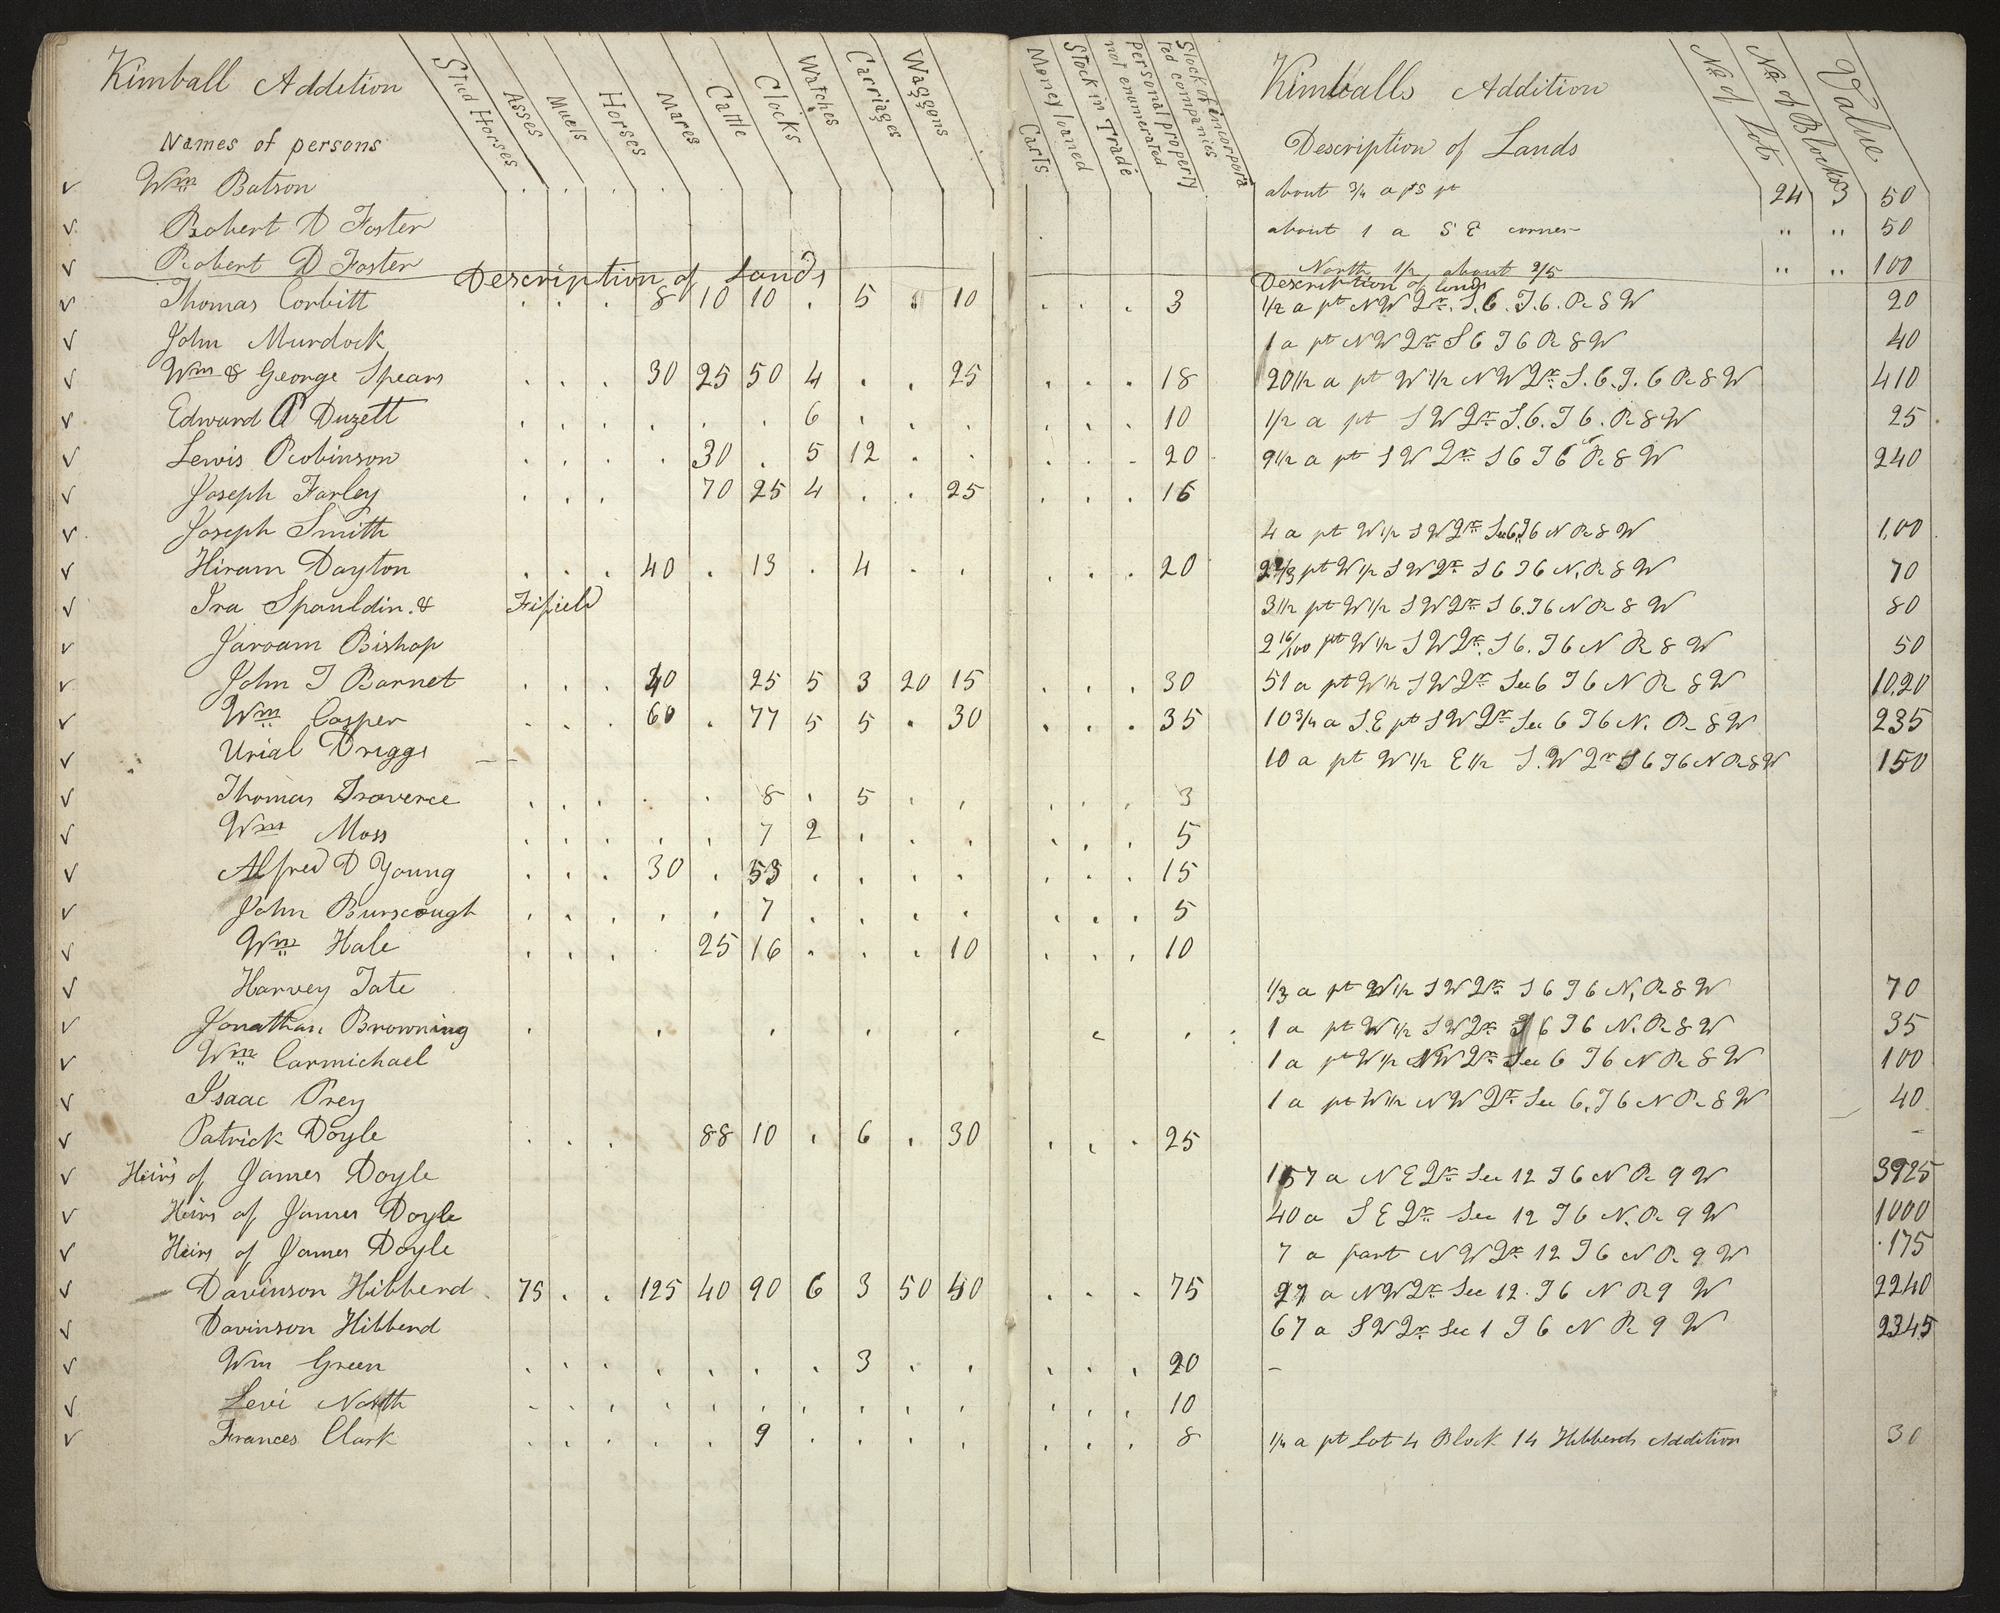 Kimball Addition
Stud Horses
Asses
Muels
Horses
Mares
Cattle
Clocks
Watches
Carriages
Waggons
Carts
Money loaned
Stock in Trade
personal property not enumerated
Stock of incorporated companies
Kimballs Addition
No. of Lots
No. of Blocks
Value
Names of persons
Description of Lands
Wm Batson . . . . about 3/4 a pt 24 3 50
Robert D Foster about 1 a S E corner " " 50
Robert D Foster North 1/2 about 2/5 " " 100
Description of Lands Description of lands
Thomas Corbitt . . . 8 10 10 . 5 . 10 . . . 3 1/2 a pt N W Qr. S. 6. T. 6. R 8 W 20
John Murdock 1 a pt N W Qr S 6 T 6 R 8 W 40
Wm & George Spears . . . 30 25 50 4 . . 25 . . . 18 20 1/2 a pt W 1/2 N W Qr. S. 6. T. 6 R 8 W 410
Edward P Duzett . . . . . . 6 . . . . . . 10 1/2 a pt S W Qr S. 6. T 6. R 8 W 25
Lewis Robinson . . . . 30 . 5 12 . . . . . 20 9 1/2 a pt S W Qr S 6 T 6 R 8 W 240
Joseph Farley . . . 70 25 4 . . 25 . . . 16
Joseph Smith 4 a pt W 1/2 S W Qr Sec 6. T 6 N R 8 W 1,00
Hiram Dayton . . . 40 . 13 . 4 . . . . . 20 pt W 1/2 S W Qr S 6 T 6 N. R 8 W 70
Ira Spauldin. & Fifield 3 1/2 pt W 1/2 S W Qr S 6. T 6 N R 8 W 80
Jaroam Bishop 2 16/100 pt W 1/2 S W Qr. S 6. T 6 N R 8 W 50
John T Barnet . . . 40 25 5 3 20 15 . . . 30 51 a pt W 1/2 S W Qr Sec 6 T 6 N R 8 W 10,20
Wm Casper . . . 60 . 77 5 5 . 30 . . . 35 10 3/4 a S. E pt S W Qr Sec 6 T 6 N. R 8 W 235
Urial Driggs 10 a pt W 1/2 E 1/2 S. W Qr S 6 T 6 N R 8 W 150
Thomas Traverce . . . . . 8 . 5 . . . . . 3
Wm Moss . . . . . 7 2 . . . . . . 5
Alfred D Young . . . 30 . 53 . . . . . . . 15
John Burscough . . . . . 7 . . . . . . . 5
Wm Hale . . . . 25 16 . . . 10 . . . 10
Harvey Tate 1/3 a pt W 1/2 S W Qr S 6 T 6 N, R 8 W 70
Jonathan Browning . . . . . . . . 1 a pt W 1/2 S W Qr S 6 T 6 N. R 8 W 35
Wm Carmichael 1 a pt W 1/2 N W Qr Sec 6 T 6 N R 8 W 100
Isaac Prey 1 a pt W 1/2 N W Qr Sec 6. T 6 N R 8 W 40
Patrick Doyle . . . 88 10 . 6 . 30 . . . 25 -
Heirs of James Doyle 157 a N E Qr Sec 12 T 6 N R 9 W 3925
Heirs of James Doyle 40 a S E Qr Sec 12 T 6 N. R 9 W 1000
Heirs of James Doyle 7 a part N W Qr 12 T 6 N R 9 W 175
Davinson Hibberd 75 . . 125 40 90 6 3 50 40 . . . 75 a N W Qr Sec 12. T 6 N R 9 W 2240
Davinson Hibberd 67 a S W Qr Sec 1 T 6 N R 9 W 2345
Wm Green . . . . . . . 3 . . . . . 20 -
Levi North . . . . . . . . . . . . . 10
Frances Clark . . . . . 9 . . . . . . . 8 1/4 a pt Lot 4 Block 14 Hibberds Addition 30